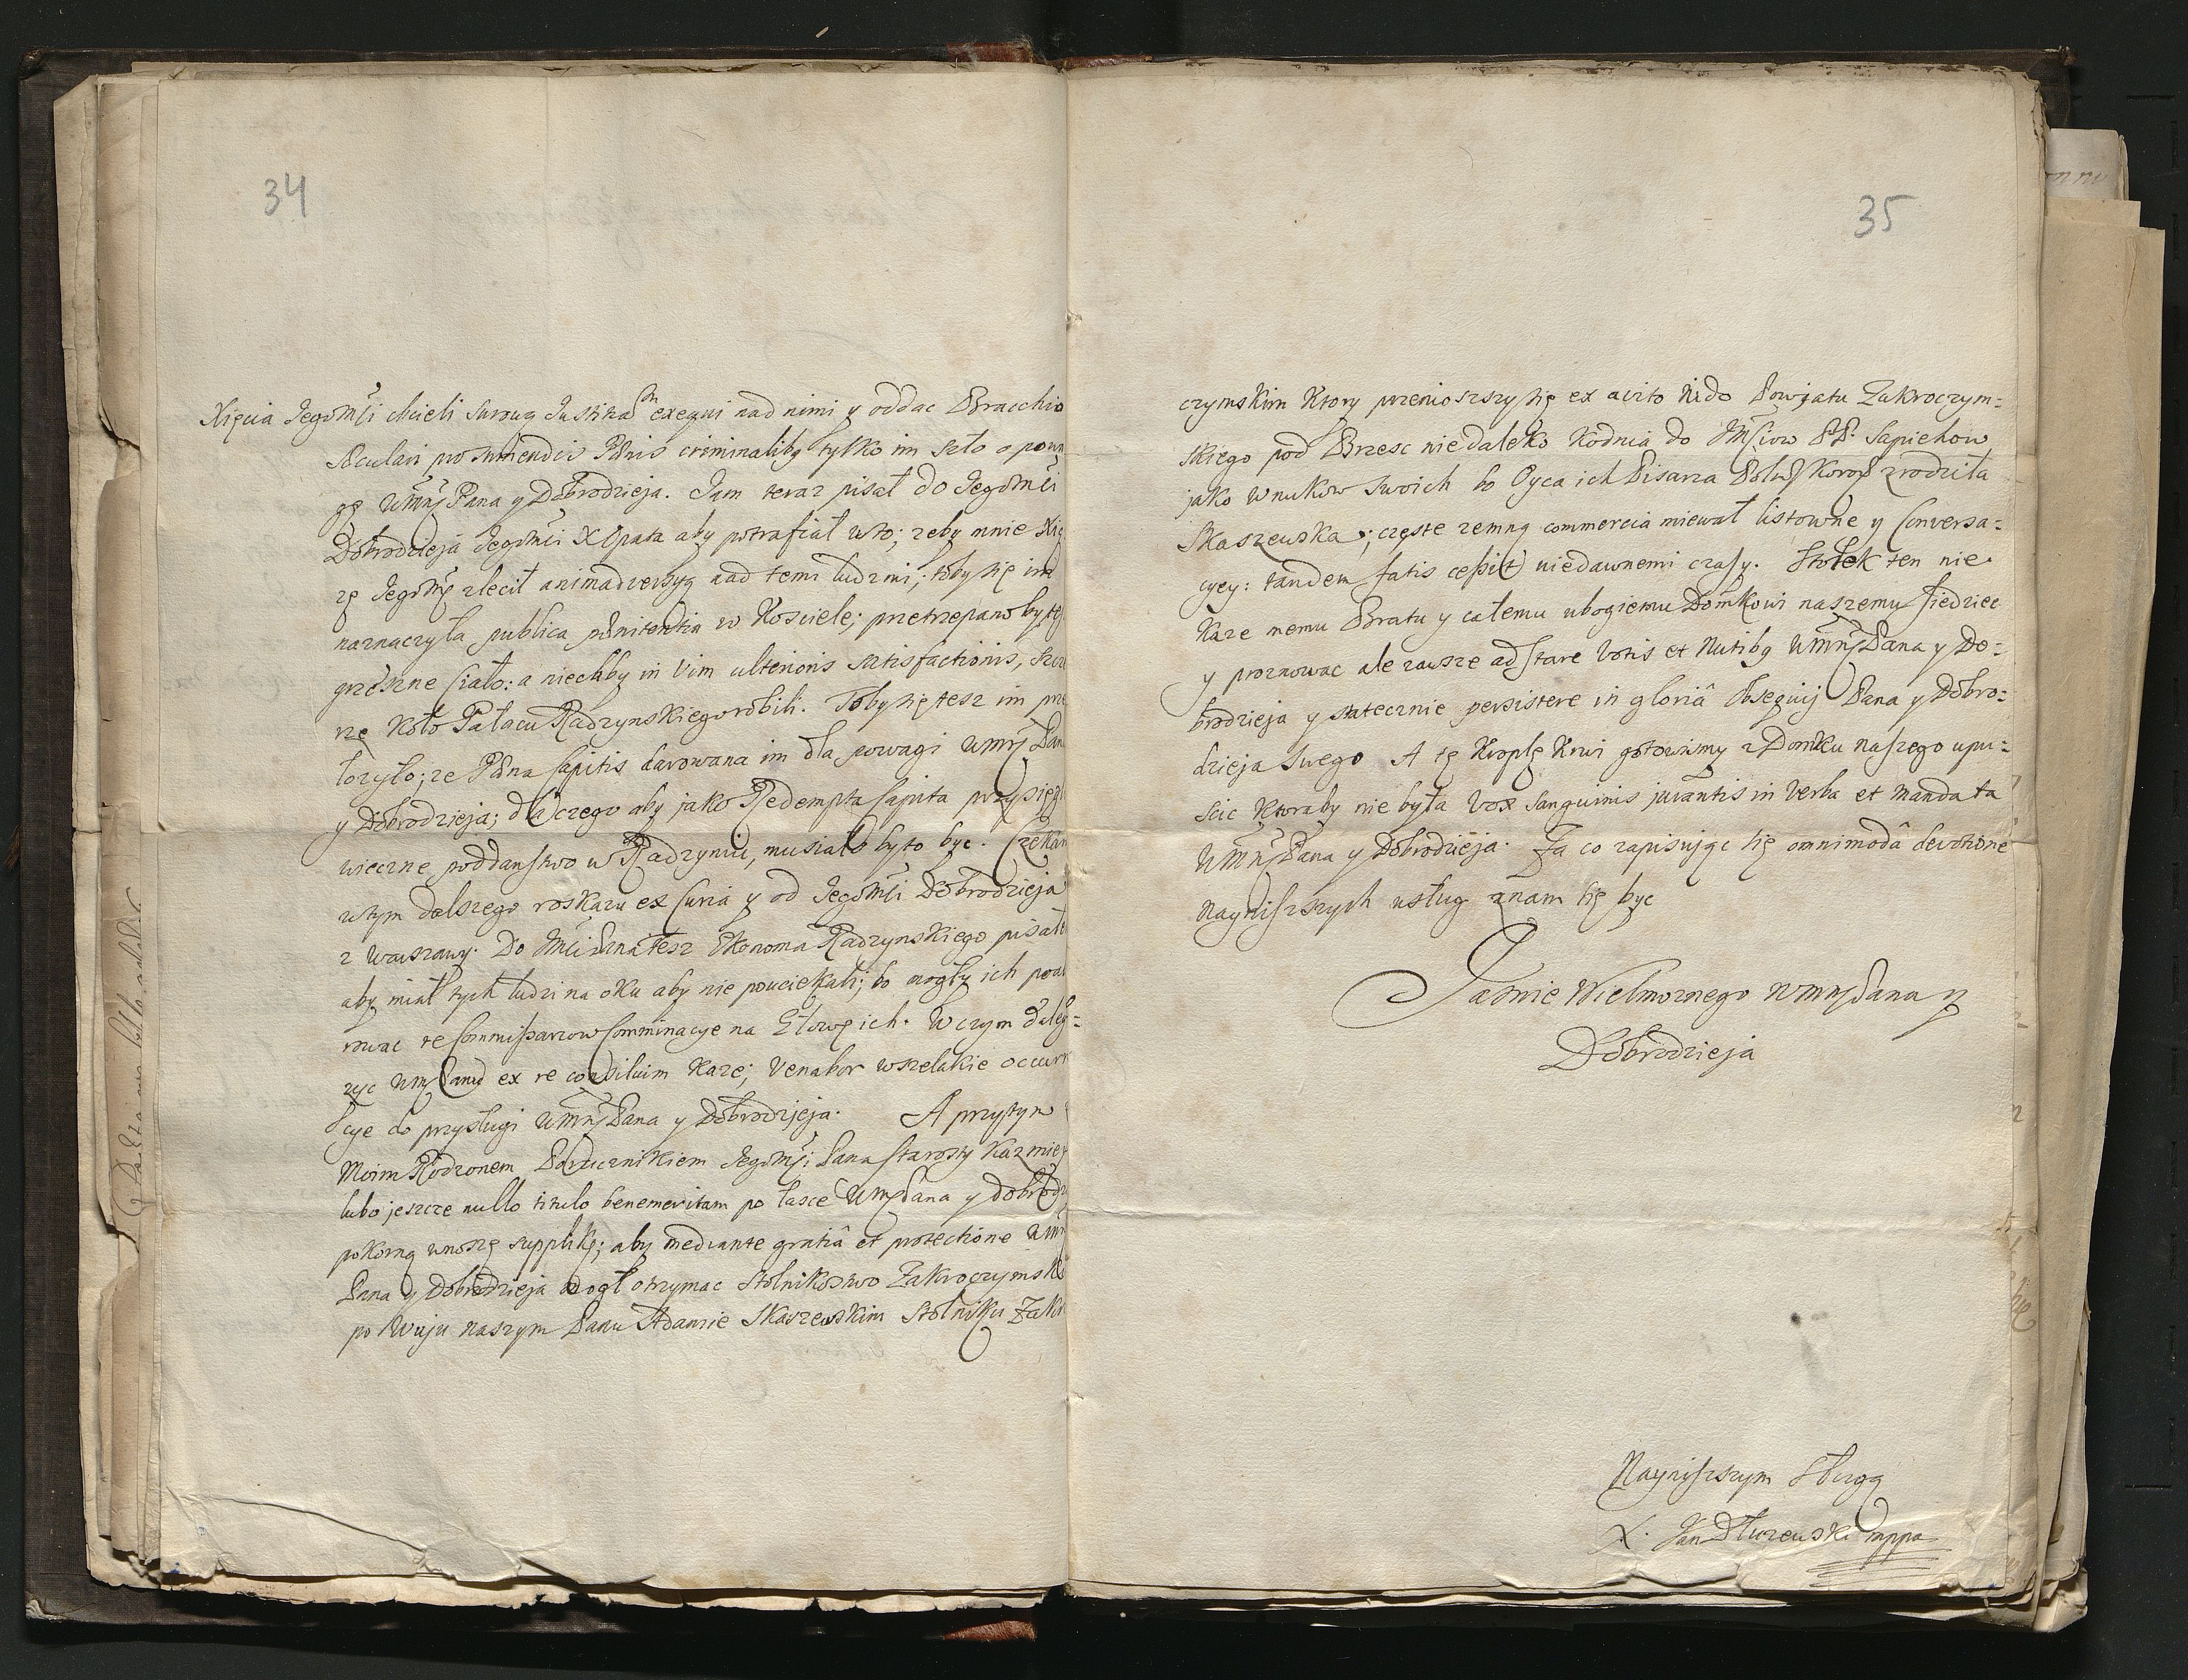 34
Xięcia Jegomści chcieli surową Justitiam exequi nad nimi y oddac Bracchio
Sęculari pro sumendis Pęnis criminalibus tylko im szło o powa
gę WMMP Pana y Dobrodzieja. Jam teraz pisał do Jegomści
Dobrodzieja Jegomści X Opata aby potrafiał w to; zeby mnie Xią
ze Jegomsc zlecił animadversyą nad temi ludzmi; toby się im
naznaczyła publica pęnitentia w Kosciele; przetrzepano by te
grzeszne Ciało: a niechby in vim ulterioris satisfactionis,
ze Koło Pałacu Radzynskiego robili. Toby się tesz im prze
łozyło; ze Pęna Capitis darowana im dla powagi WMM Pana
y Dobrodzieja; dla czego aby jako Redempta Capita przysięgli
wieczne poddanstwo w Radzyniu, musiało by to byc. Czekam
w tym dalszego roskazu ex Curia y od Jegomści Dobrodzieja
z Warszawy. Do Mści Pana tesz Ekonoma Radzynskiego pisałem
aby miał tych ludzi na oku aby nie pouciekali; bo mogły ich
rowac te Commissarzow Comminacye na Głowę ich. W czym
zyc WM Panu ex re consilium Kaze; Venabor wszelakie occurr
cye do przysługi WMMPana y Dobrodzieja. A przytym
Moim Rodzonem Porucznikiem Jegomści Pana Starosty Kazmier
lubo jeszcze nullo titulo benemeritam po łasce WMPana y Dobrodz
pokorną wnoszę supplikę; aby mediante gratiâ et protectione WMM
Pana y Dobrodzieja mogł otrzymac Stolnikostwo Zakroczymskie
po Wuju naszym Panu Adamie Skaszewskim Stolniku Zakro
35
czymskim Ktory przenioszszy się ex avito Nido Powjatu Zakroczym=
skiego pod Brzesc niedaleko Kodnia do Mściow PP. Sapiehow
jako wnukow swoich bo Oyca ich Pisarza Polnego Koronnego zrodziła
Skaszewska; częste zemną commercia miewał listowne y Conversa=
cyey: tandem fatis cessit niedawnemi czasy. Stołek ten nie
Kaze memu Bratu y całemu ubogiemu Domkowi naszemu siedziec
y proznowac ale zawsze adstare Votis et Nutibus WMMPana y Do=
brodzieja y statecznie persistere in gloriâ Obsequij Pana y Dobro=
dzieja swego A tę Kroplę Krwi gotowismy z Domku naszego upu=
scic Ktoraby nie była Vox Sanguinis jurantis in Verba et Mandata
WMMPana y Dobrodzieja. Za co zapisując się omnimodâ devotione
Nayniszszych usług znam się byc
Jasnie Wielmoznego WMMPana y
Dobrodzieja
Nayniszszym Sługą
X. Jan Dłuzewski mppa